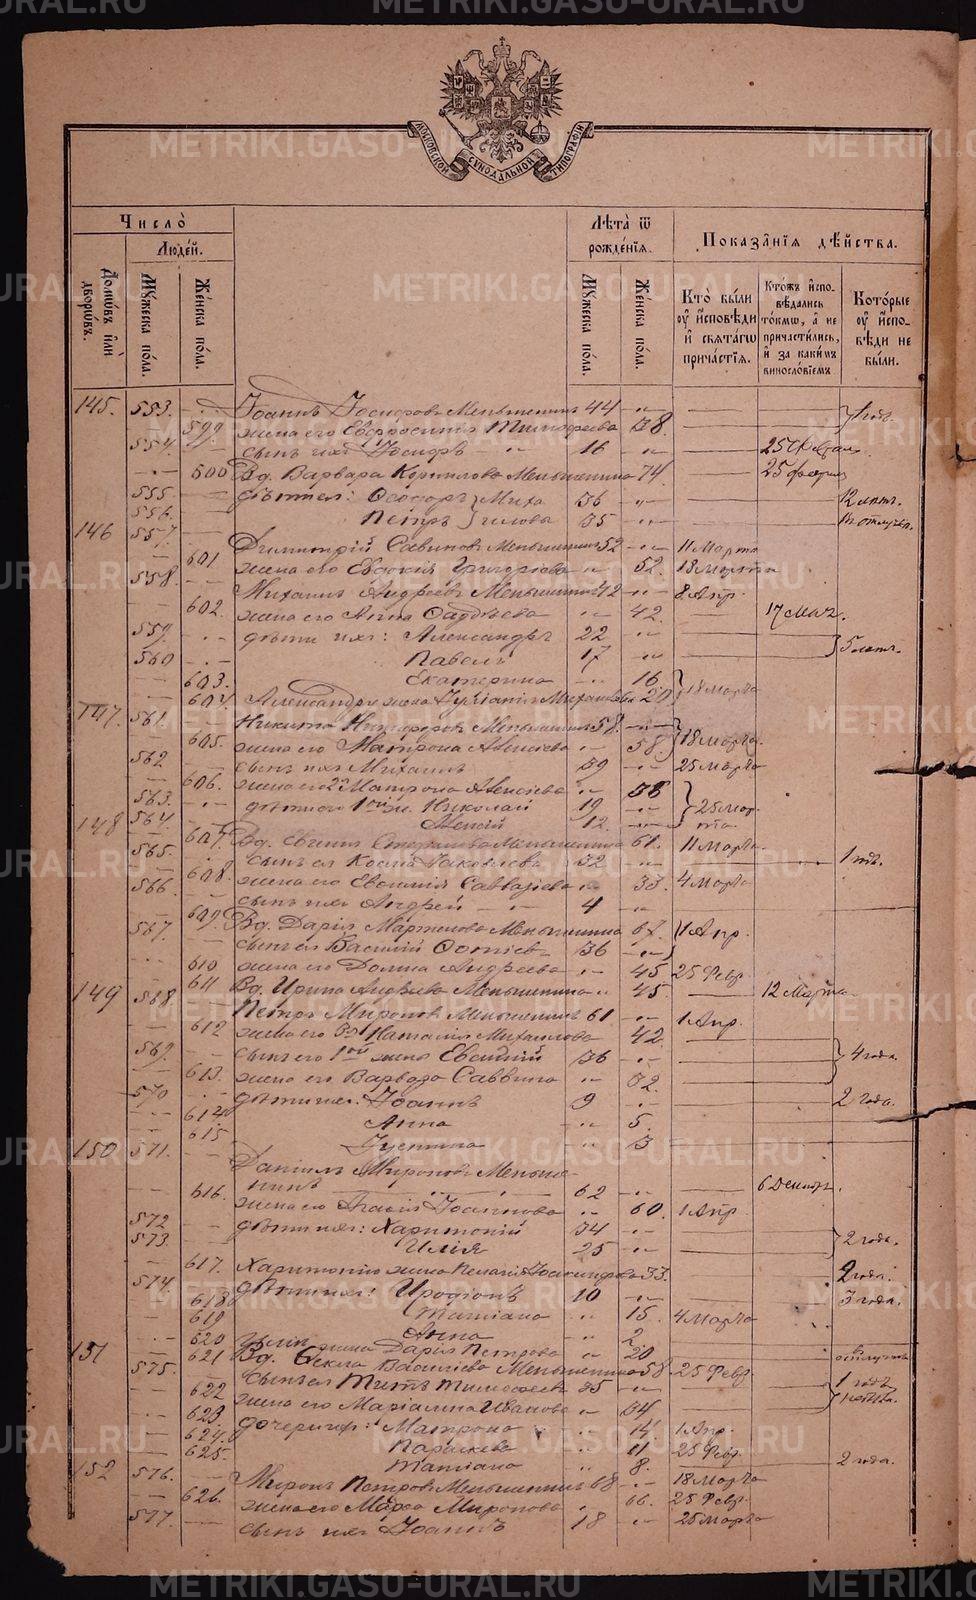 METRIKI.GASO-URAL.RU
МОСКОВСКОЙ СѴНОДАЛЬНОЙ ТИПОГРАФІИ
Число̀
Людей.
Домѡвъ и҆лѝ дворѡвъ.
Мꙋжеска пола.
Женска пола.
Лѣта̀ ѿ рожденїѧ.
Мꙋжеска пола.
Женска пола.
Показа̑нїѧ дѣйства.
Кто̀ были ᲂу҆ и҆сповѣди и҆ свѧта́гѡ прича́стїѧ.
Кто́жъ и҆спо-
вѣдались то́кмѡ, а҆ не причасти́лись, и҆ за каки́мъ винословїемъ
Кото́рые ᲂу҆ и҆спо-
вѣди не были.
145. 553. Іоаннъ Іосифовъ Меньшенинъ 44 1 годъ.
599 жена его Евфросинія Тимофеева 38.
554. сынъ ихъ Іосифъ 16 25 Февраля
600 Вд. Варвара Корнилова Меньшенина 74. 25 февр
555. дѣти ея: Ѳеодоръ } Миха 36 12 лѣтъ.
556. Петръ } илова 35 въ отлучк.
146 557. Димитрій Саввиновъ Меньшенинъ 52 11 Марта
601 жена его Евдокія Григоріева 52. 18 марта
558. Михаилъ Андреевъ Меньшенинъ 42 8 Апр.
602. жена его Анна Фаддѣева 42. 17 мар.
559. дѣти ихъ: Александръ 22 } 5 лѣтъ.
560 Павелъ 17
603. Екатерина 16
604. Александра жена Іуліанія Михайлова 20 } 18 Марта
147. 561. Никита Никифоровъ Меньшенинъ 58.
605. жена его Матрона Алексіева 58 } 18 марта.
562 сынъ ихъ Михаилъ 39 25 марта
606. жена его 2я Матрона Алексіева 38
563. дѣти его 1ой ж. Николай 19 } 25 мар
148 564. Алексій 12. та.
607. Вд. Евгенія Стефанова Меньшенина 61. 11 марта.
565. сынъ ея Косма Іаковлевъ 32 1 годъ.
608. жена его Евдокія Савватіева 33. 4 марта
566. сынъ ихъ Андрей 4
609. Вд. Дарія Мартинова Меньшенина 67. } 1 Апр.
567. сынъ ея Василій Фотіев 36
610 жена его Домна Андреева 45 25 Февр
611 Вд. Ирина Андреева Меньшенина 45. 12 Марта
149 568. Петръ Мироновъ Меньшенинъ 61 1 Апр.
612 жена его 2я Наталія Михаилова 42.
569. сынъ его 1ой жены Евгеній 36 } 4 года.
613. жена его Варвара Саввина 32.
570 дѣти ихъ: Іоаннъ 9 2 года.
614 Анна 5.
615. Іустина 3
150 571. Даніилъ Мироновъ Меньше-
нинъ 62 6 Декабр.
616. жена его Агафія Іоаннова 60. 1 Апр.
572 дѣти ихъ: Харитоній 34 } 2 года.
573. Илія 25
617. Харитонію жена Пелагія Іоакимова 33. 2 года.
574. дѣти ихъ: Иродіонъ 10 3 года.
618
619 Татіана 15. 4 Марта
620 Анна 2.
621 Иліи жена Дарія Петрова 20 въ отлучкѣ
151 Вд. Ѳекла Василіева Меньшенина 58 25 Февр.
575. сынъ ея Титъ Тимофеев 35 } 1 годъ
622 жена его Маріамна Иванова 34
623. дочери их: Матрона 14 1 Апр.
624. Параскева 11 25 Февр.
625. Татіана 8. 2 года.
152 576. Миронъ Петровъ Меньшенинъ 68 18 Марта
626. жена его Марѳа Миронова 66. 25 Февр.
577. сынъ ихъ Іоаннъ 18 25 Марта